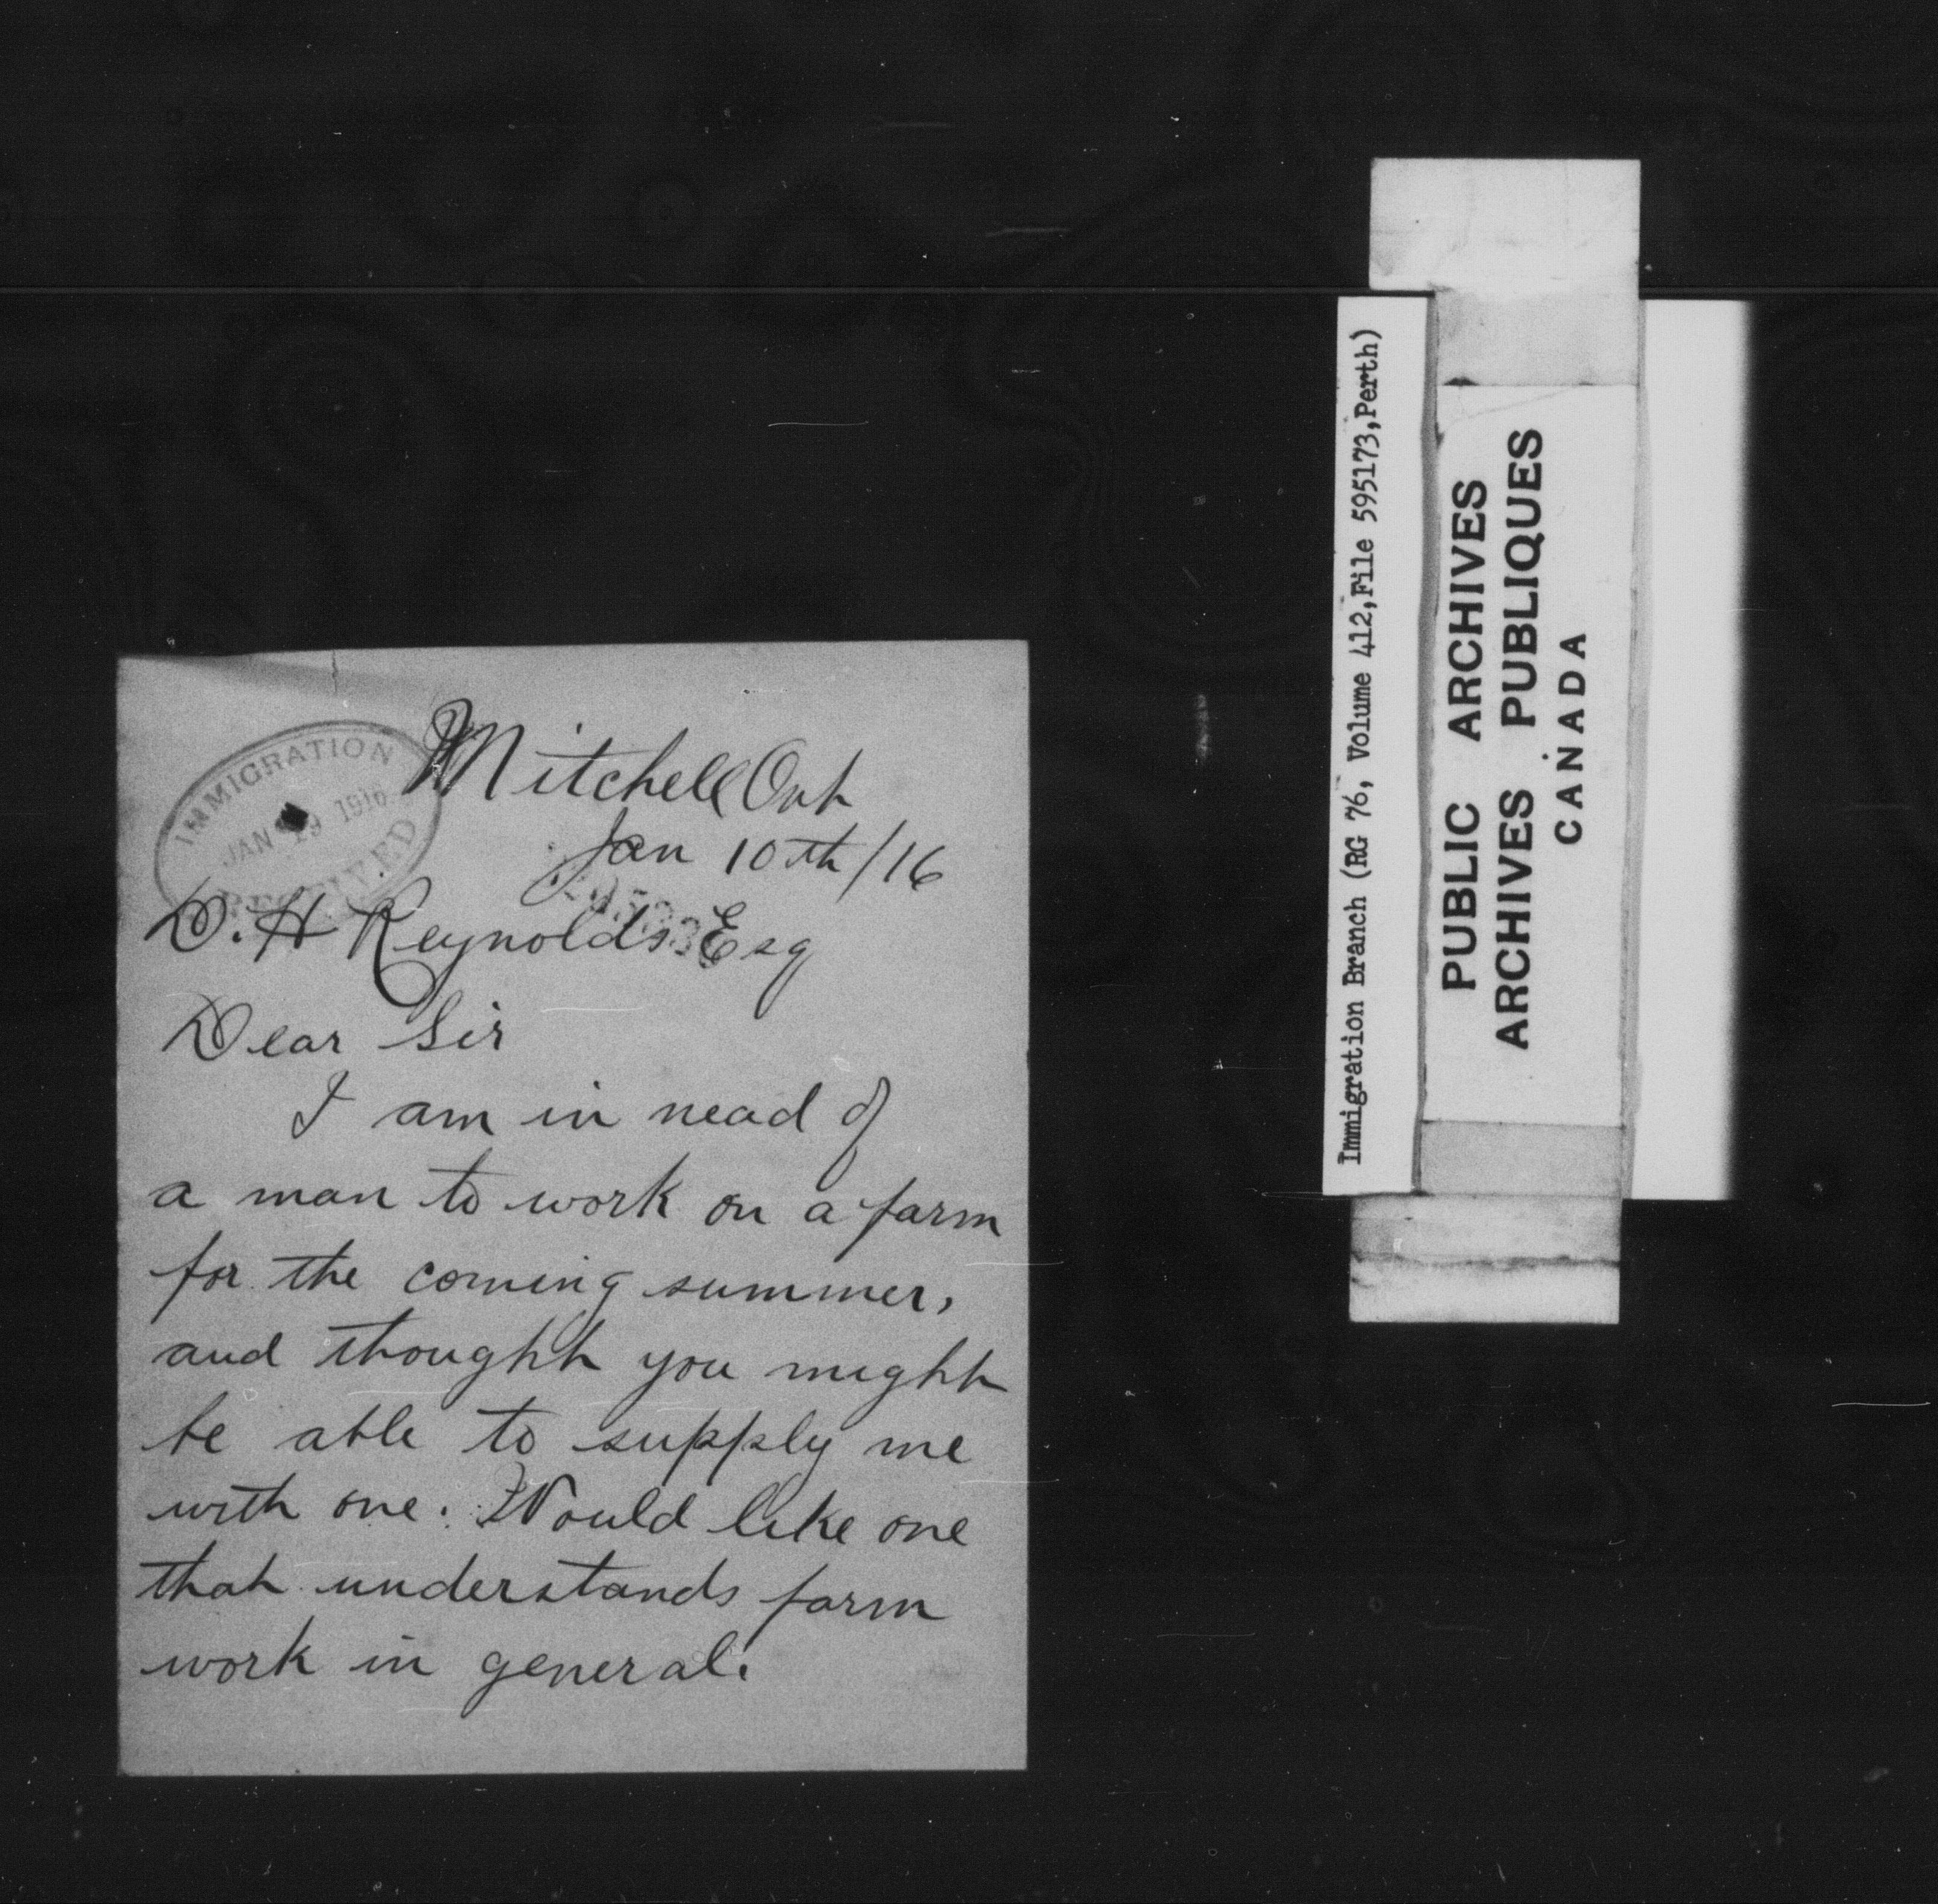 Mitchell Ont
Jan 10th/16
IMMIGRATION
JAN 19 1916
RECEIVED
D. H Reynolds Esq
Dear Sir
I am in nead of
a man to work on a farm
for the coming summer,
and thought you might
be able to supply me
with one. Would like one
that understands farm
work in general.
Immigration Branch (RG 76, Volume 412,File 595173,Perth)
PUBLIC ARCHIVES
ARCHIVES PUBLIQUES
CANADA